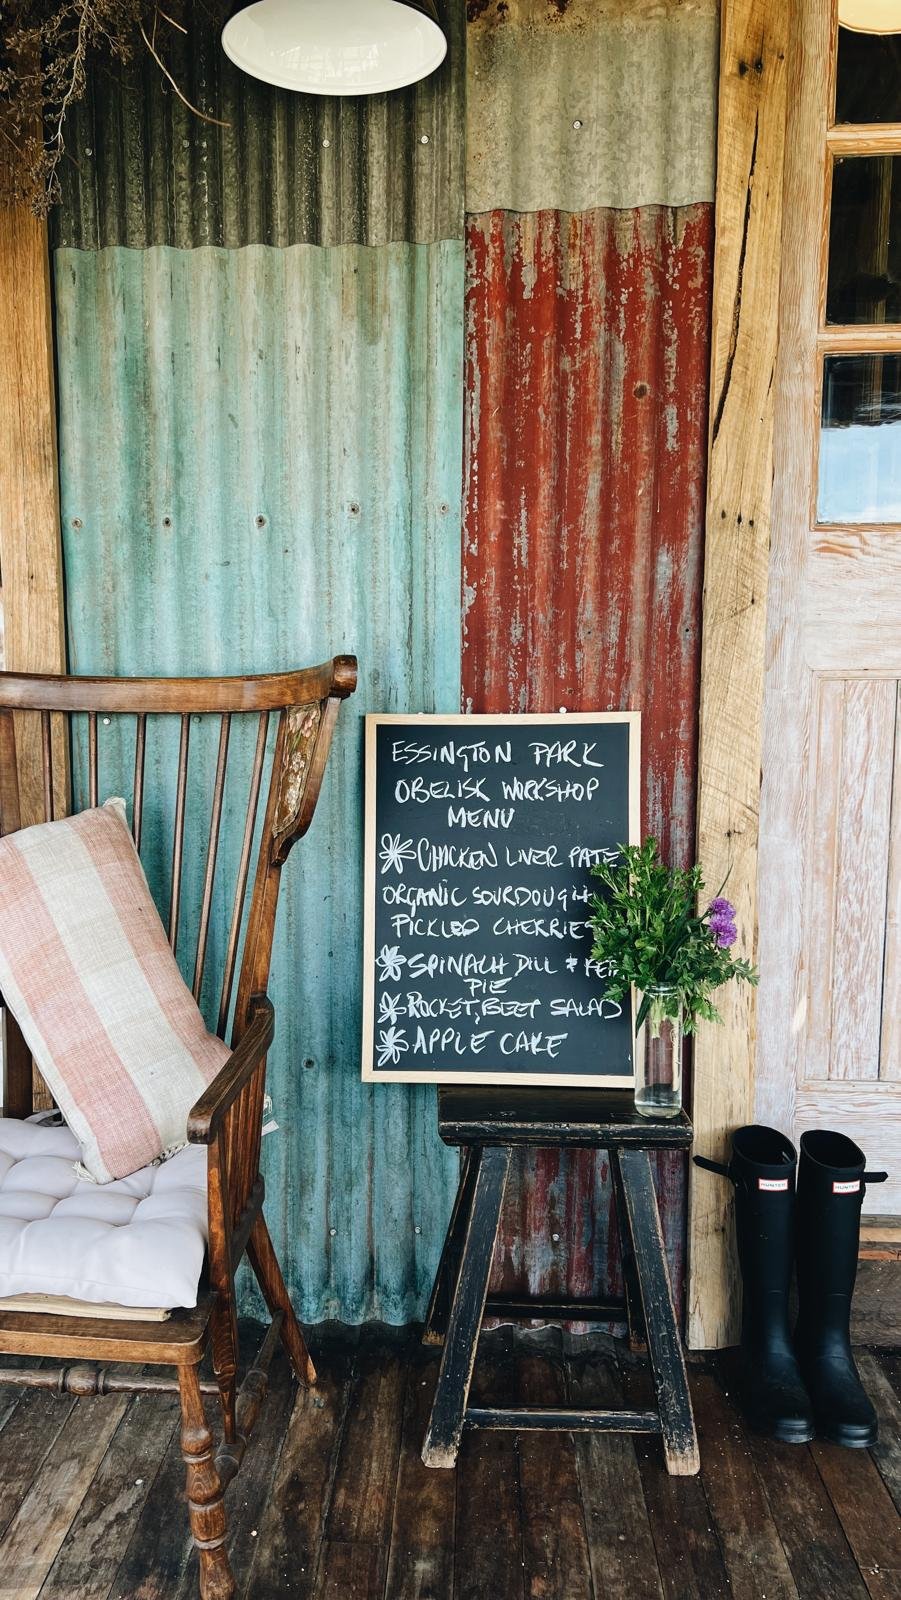 ESSINGTON PARK
OBELISK WORKSHOP
MENU
CHICKEN LIVER PATE
ORGANIC SOURDOUGH
PICKLED CHERRIES
SPINACH DILL &
PIE
ROCKET, BEET SALAD
APPLE CAKE
HUNTER
HUNTER